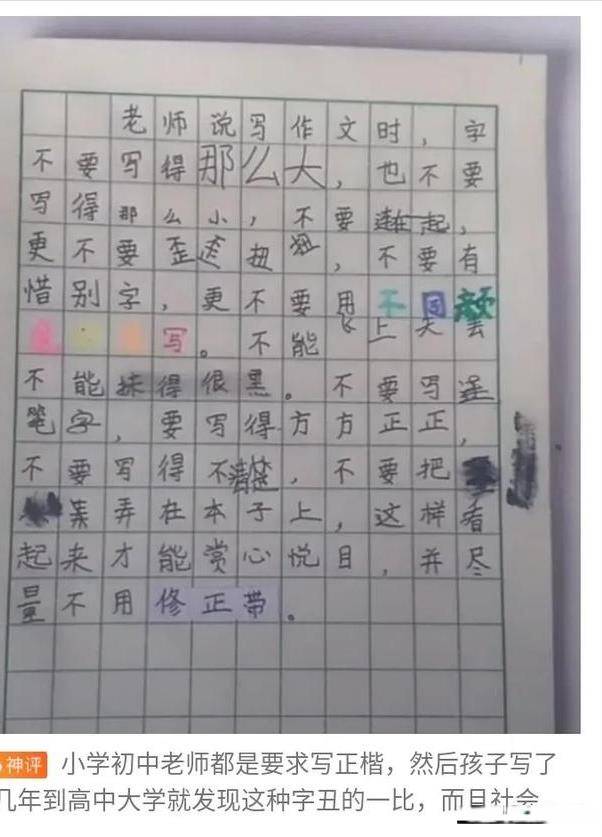 老师说写作文时，字
不要写得那么大，也不要
写得那么小，不要连在一起，
更不要歪歪扭扭，不要有
惜别字，更不要用不同颜
写。不能飞上天去
不能抹得很黑。不要写连
笔字，要写得方方正正，
不要写得不清楚，不要把
弄在本子上，这样看
起来才能赏心悦目，并尽
量不用修正带。
神评 小学初中老师都是要求写正楷，然后孩子写了
几年到高中大学就发现这种字丑的一比，而且社会